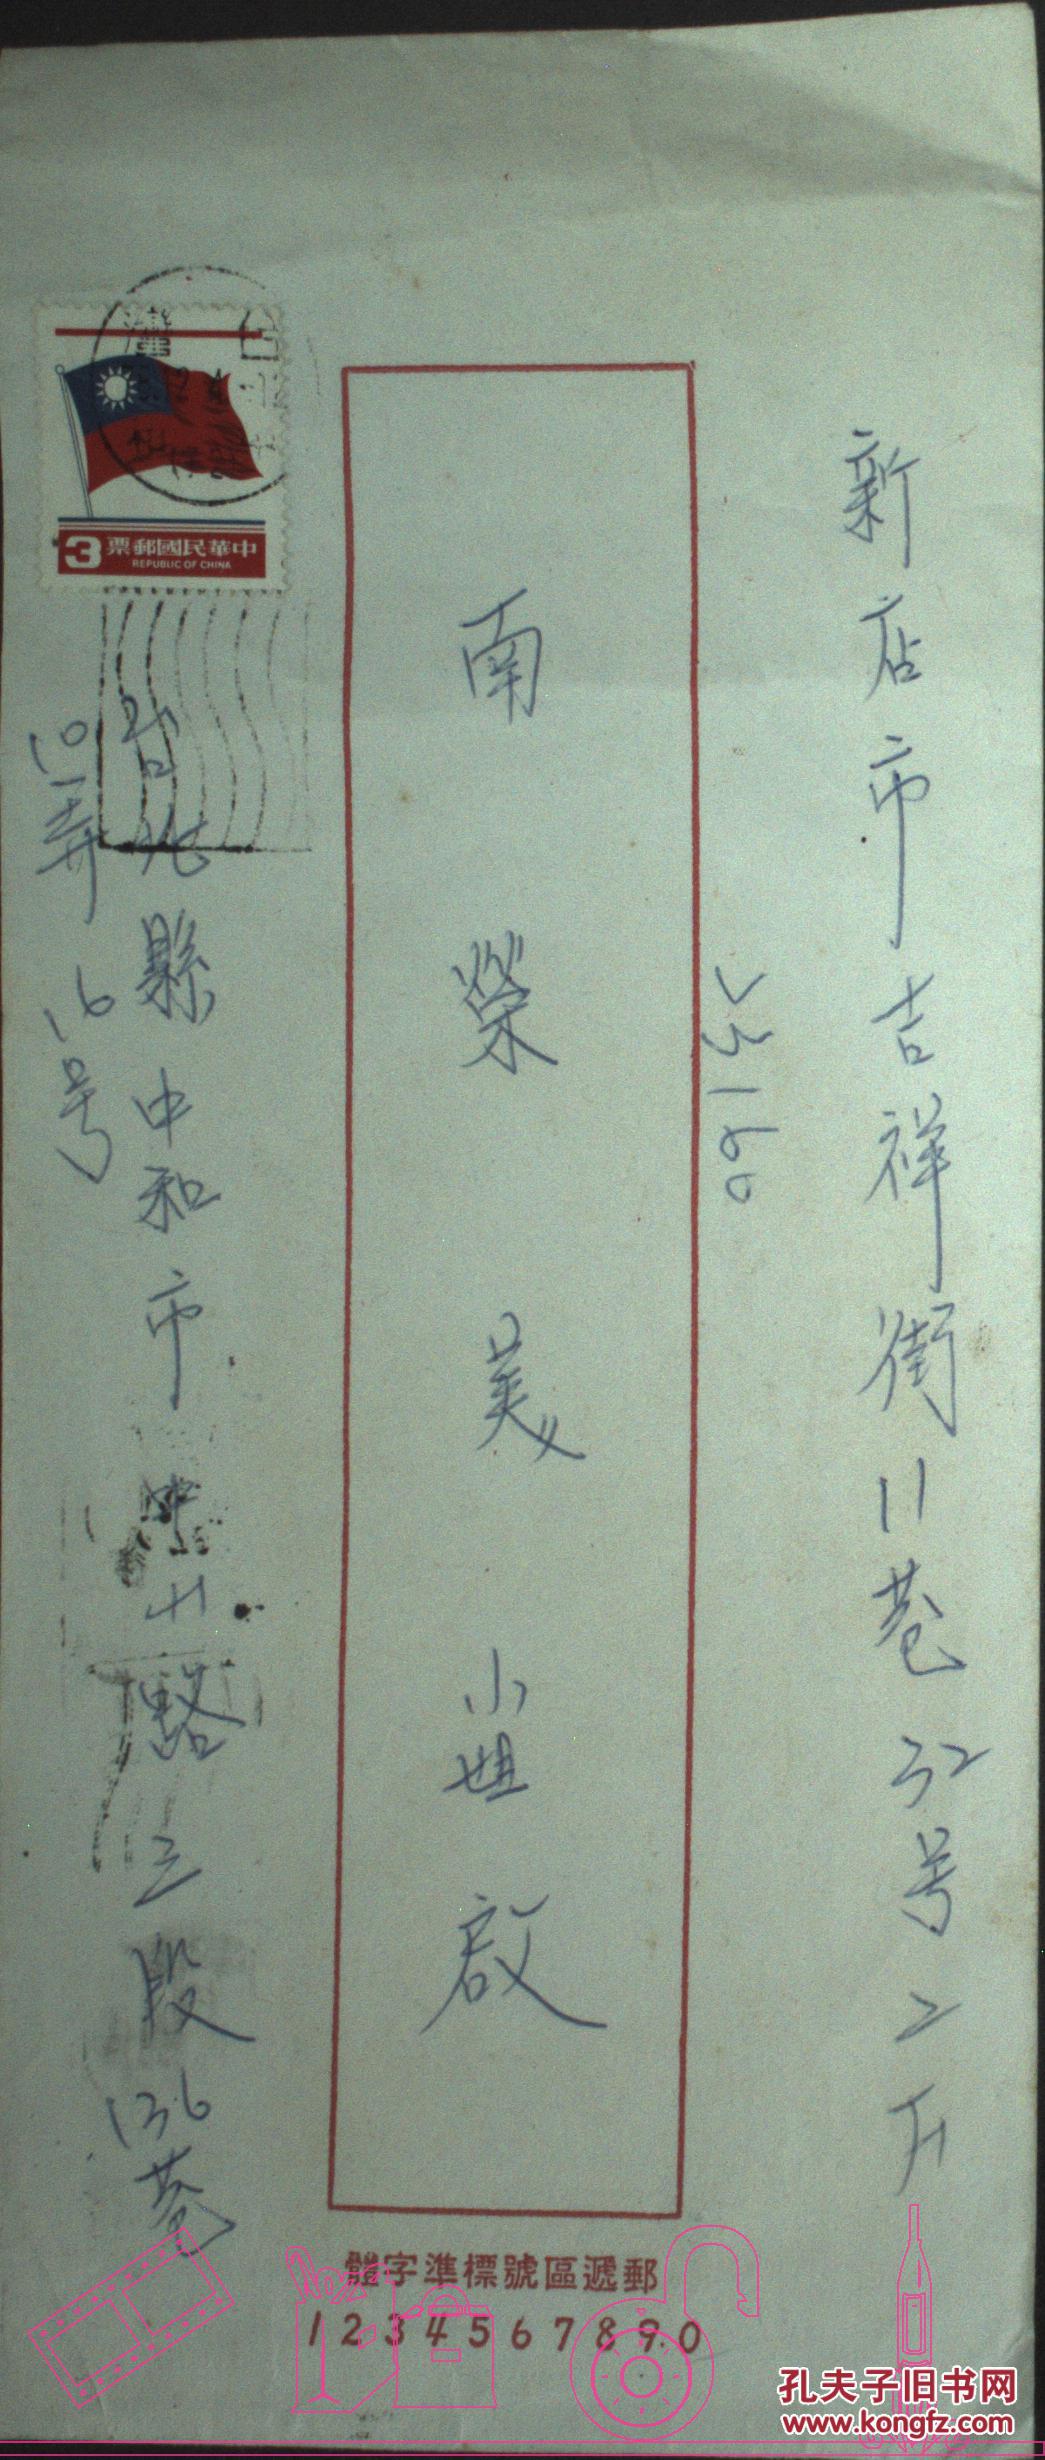 新店市吉祥街11巷32号2F
23160
南榮美小姐啟
台北縣中和市中山路三段136巷
10弄16号
中華民國郵票
3
REPUBLIC OF CHINA
郵遞區號標準字體
1 2 3 4 5 6 7 8 9 0
孔夫子旧书网
www.kongfz.com